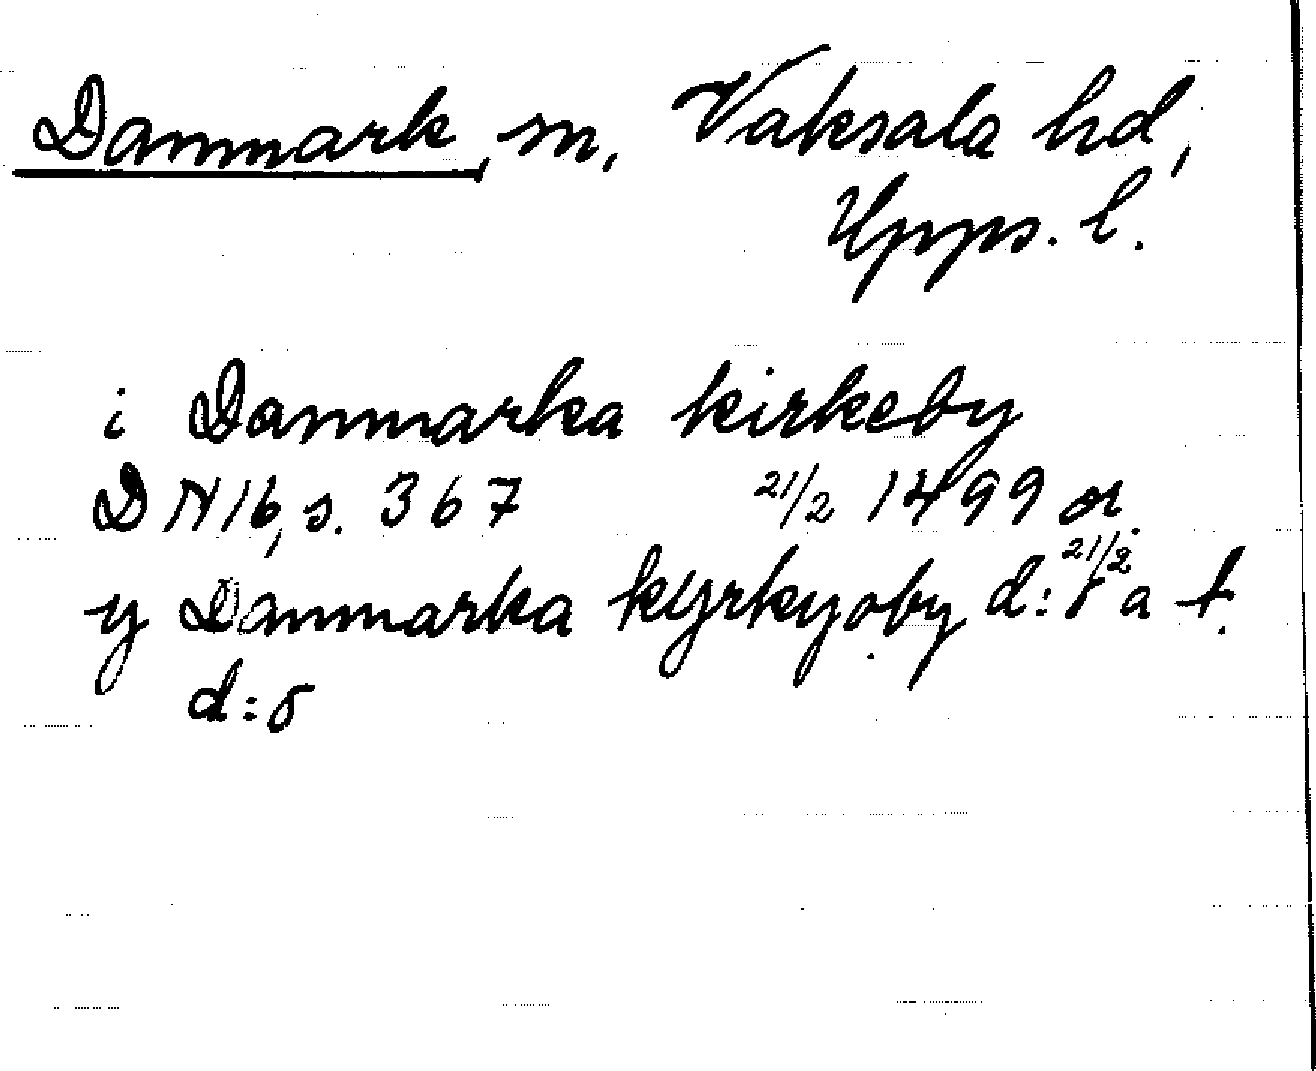 Danmark, sn, Vaksala hd,
Upps. l.
i Danmarka kirkeby
DN 16, s. 367 21/2 1499 or.
y Danmarka kyrkyoby d:o 21/2 a f.
d:o